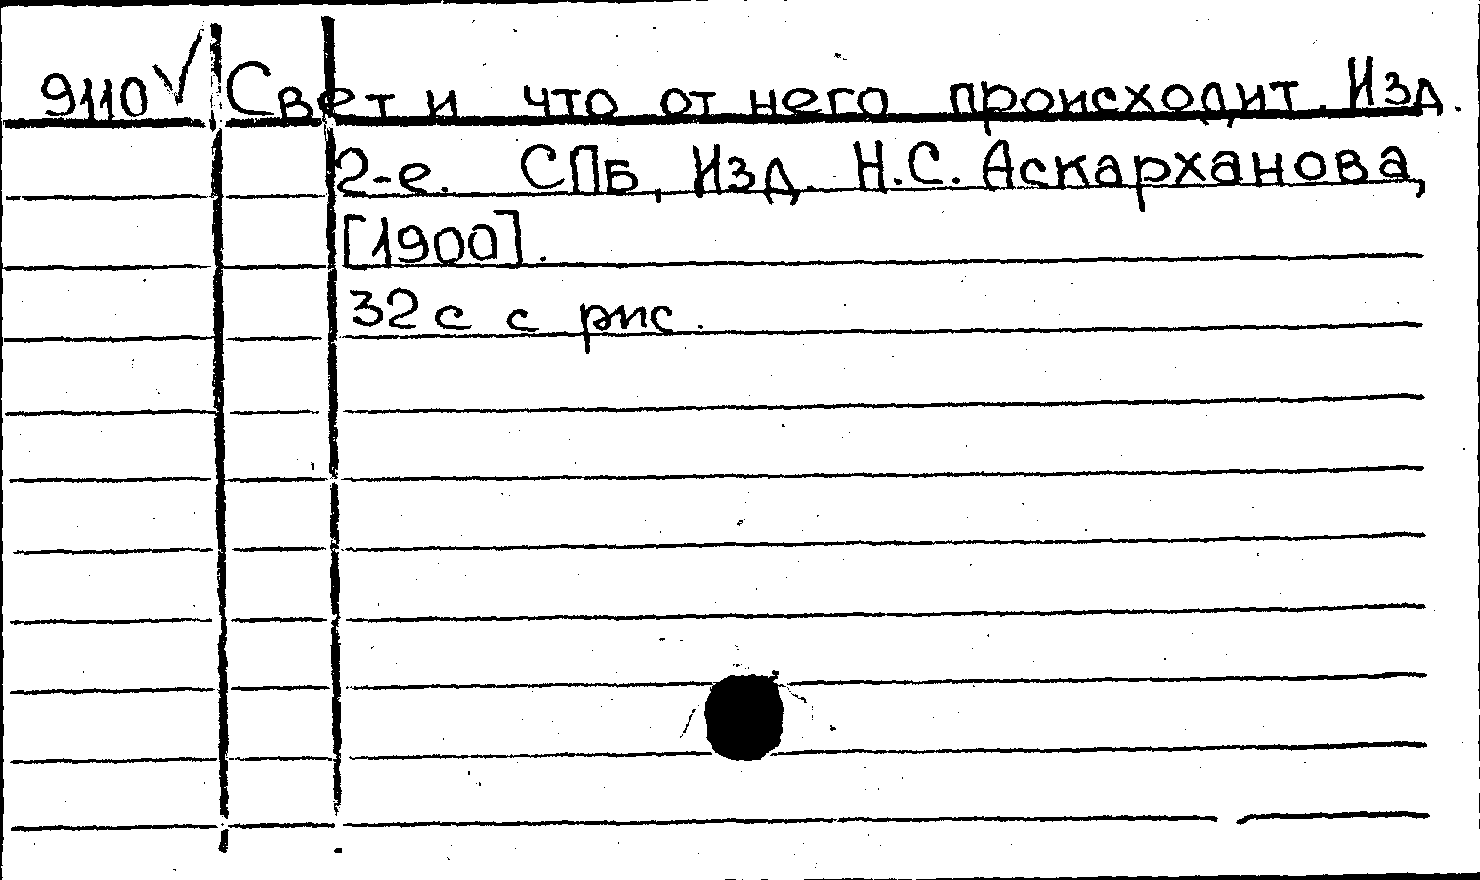 9110 √ Свет и что от него происходит. Изд.
2-е. СПб, Изд. Н.С. Аскарханова,
[1900].
32 с с рис.